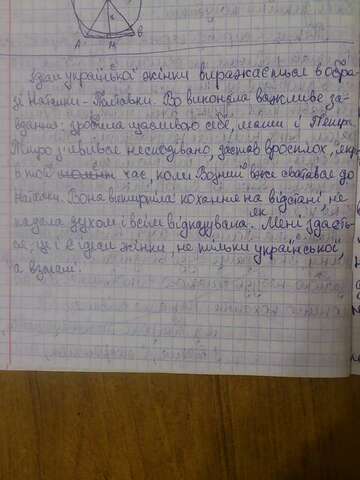 А М В
Ідеал української жінки виражається в обра-
зі Наталки - Полтавки. Во виконала важливе за-
вдання: зробила щасливою себе, маму і Петра.
Петро з'явився несподівано, заспав зросплох, якраз
в той час, коли Возний вже сватався до
Наталки. Вона витримала кохання на відстані, не
падала духом і всім відказувала. Мені як здаєть-
ся, це і є ідеал жінки, не тільки української,
а взагалі.